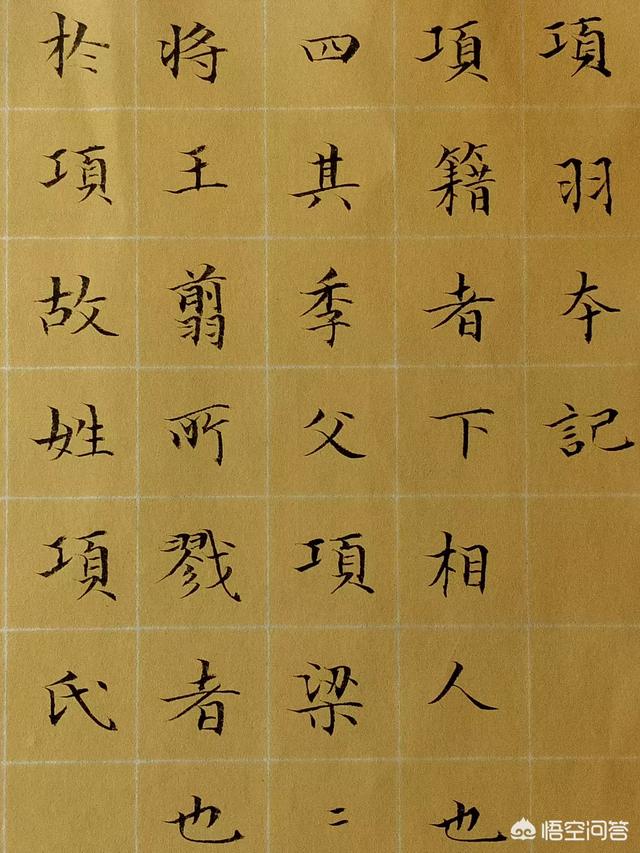 項羽本記
項籍者下相人也
四其季父項梁二
将王翦所戮者也
於項故姓項氏
悟空问答